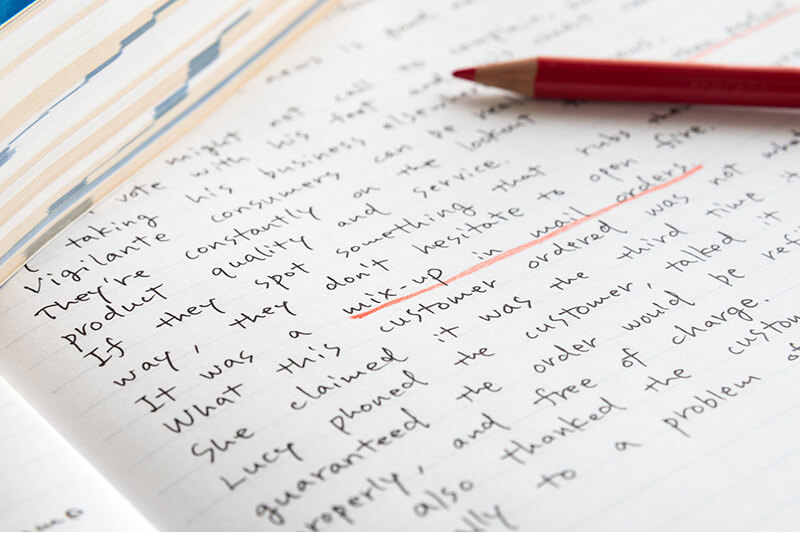 news is
might not call to
vote with his feet and
taking his business elsewhere
Vigilante consumers can be
They're constantly on the lookout
product quality and service.
If they spot something that rubs
way, they don't hesitate to open fire.
It was a mix-up in mail orders.
What this customer ordered was not what
She claimed it was the third time it
Lucy phoned the customer, talked it
guaranteed the order would be
properly, and free of charge.
also thanked the
to a problem of